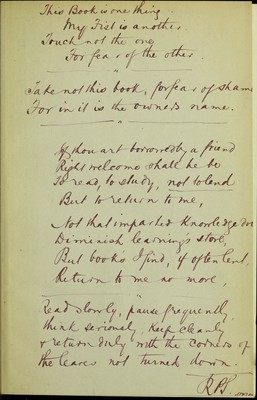 This Book is one thing.
My Fist is another.
Touch not the one
For fear of the other.
Take not this book, for fear of shame
For in it is the owners name.
If thou art borrowed by a friend
Right welcome shall he be
To read, to study, not to lend
But to return to me,
Not that imparted Knowledge doth
Diminish learning's store,
But books I find, if often lent,
Return to me no more,
Read slowly, pause frequently,
think seriously. Keep cleanly
& return duly with the corners of
the leaves not turned down.